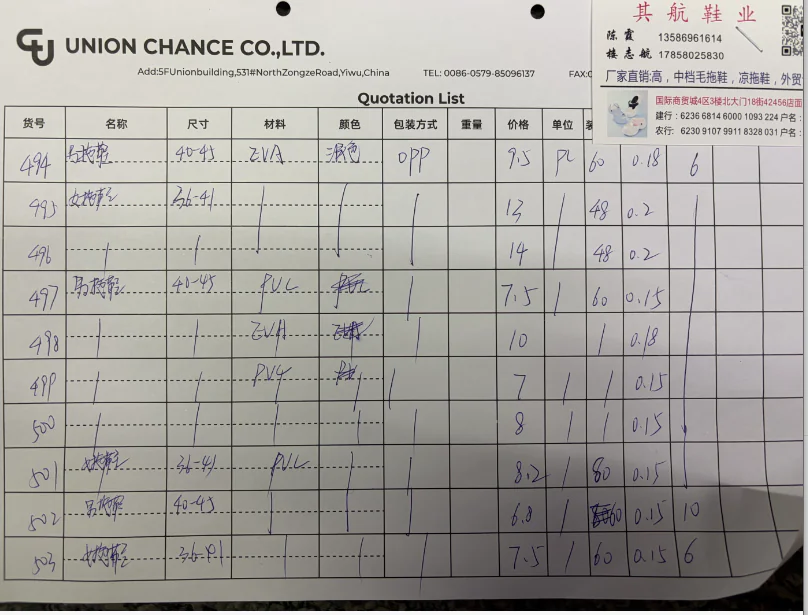 其航鞋业
陈霞 13586961614
楼志航 17858025830
厂家直销:高,中档毛拖鞋,凉拖鞋,外贸
国际商贸城4区3楼北大门18街42456店面
建行:6236 6814 6000 1093 224 户名:
农行: 6230 9107 9911 8328 031 户名:
UNION CHANCE CO.,LTD.
Add:5FUnionbuilding,531#NorthZongzeRoad,Yiwu,China TEL: 0086-0579-85096137 FAX:0
Quotation List
货号 名称 尺寸 材料 颜色 包装方式 重量 价格 单位 装
494 男拖鞋 40-45 EVA 混色 OPP 9.5 PC 60 0.18 6
495 女拖鞋 36-41 13 48 0.2
496 14 48 0.2
497 男拖鞋 40-45 PVC 7.5 60 0.15
498 EVA 10 0.18
499 PVC 7 0.15
500 8 0.15
501 女拖鞋 36-41 PVC 8.2 80 0.15
502 男拖鞋 40-45 6.8 60 0.15 10
503 女拖鞋 36-41 7.5 60 0.15 6